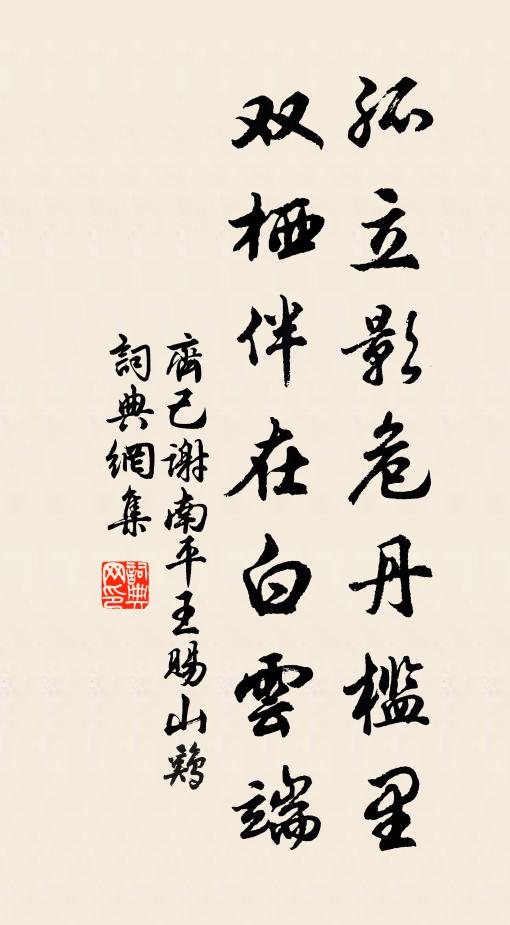 孤立影危丹槛里
双栖伴在白雲端
齊己谢南平王賜山鷄
詞典網集
詞典网印